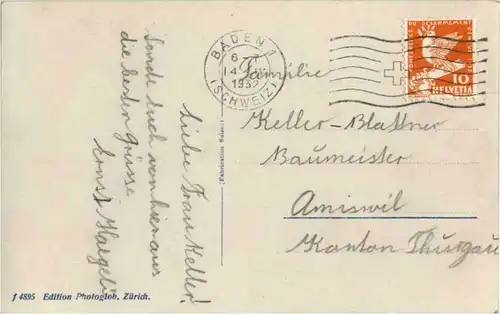 Liebe Frau Keller!
Sende Euch von hier aus
die besten Grüsse
Ernst
BADEN 1
1932
(SCHWEIZ)
DU DÉSARMEMENT
10
HELVETIA
Familie
Keller-Blattner
Baumeister
Amiswil
Kanton Thurgau
(Fabrication Suisse)
f 4895 Edition Photoglob, Zürich.